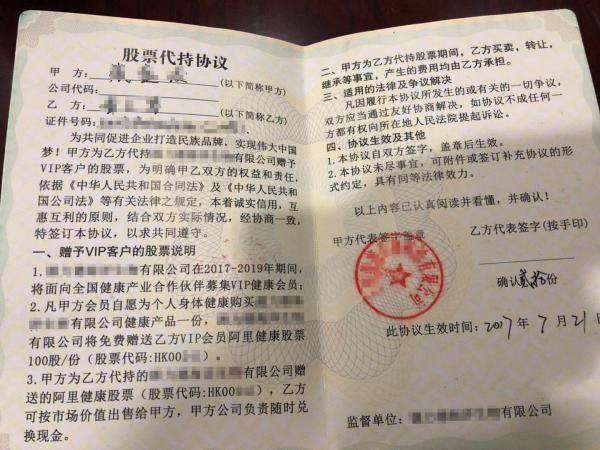 股票代持协议
甲 方: (以下简称甲方)
公司代码:
乙 方: (以下简称乙方)
证件号码:
为共同促进企业打造民族品牌，实现伟大中国
梦！甲方为乙方代持 有限公司赠予
VIP客户的股票，为明确甲乙双方的权益和责任，
依据《中华人民共和国合同法》及《中华人民共和
国公司法》等有关法律之规定，本着诚实信用，互
惠互利的原则，结合双方实际情况，经协商一致，
特签订本协议，以求共同遵守。
一、赠予VIP客户的股票说明
1. 有限公司在2017-2019年期间，
将面向全国健康产业合作伙伴募集VIP健康会员;
2. 凡甲方会员自愿为个人身体健康购买
有限公司健康产品一份，
有限公司将免费赠送乙方VIP会员阿里健康股票
100股/份（股票代码:HK00 ）。
3.甲方为乙方代持的 有限公司赠
送的阿里健康股票（股票代码:HK00 ），乙方
可按市场价值出售给甲方，甲方公司负责随时兑
换现金。
二、甲方为乙方代持股票期间，乙方买卖，转让，
继承等事宜，产生的费用均由乙方承担。
三、适用的法律及争议解决
凡因履行本协议所发生的或有关的一切争议，
双方应当通过友好协商解决，如协议不成任何一
方都有权向所在地人民法院提起诉讼。
四、协议生效及其他
1.本协议自双方签字，盖章后生效。
2.本协议未尽事宜，可附件或签订补充协议的形
式约定，具有同等法律效力。
以上内容已认真阅读并看懂，并确认！
甲方代表签字盖章 乙方代表签字(按手印)
有限公司
确认贰拾份
此协议生效时间: 2017年7月21日
监督单位: 有限公司